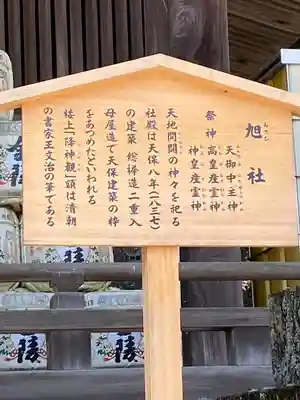 旭社
あさひ
祭神
天御中主神
高皇産霊神
神皇産霊神
天地開闢の神々を祀る
社殿は天保八年(一八三七)
の建築 総欅造二重入
母屋造で天保建築の粋
をあつめたといわれる
楼上「降神観」額は清朝
の書家王文治の筆である